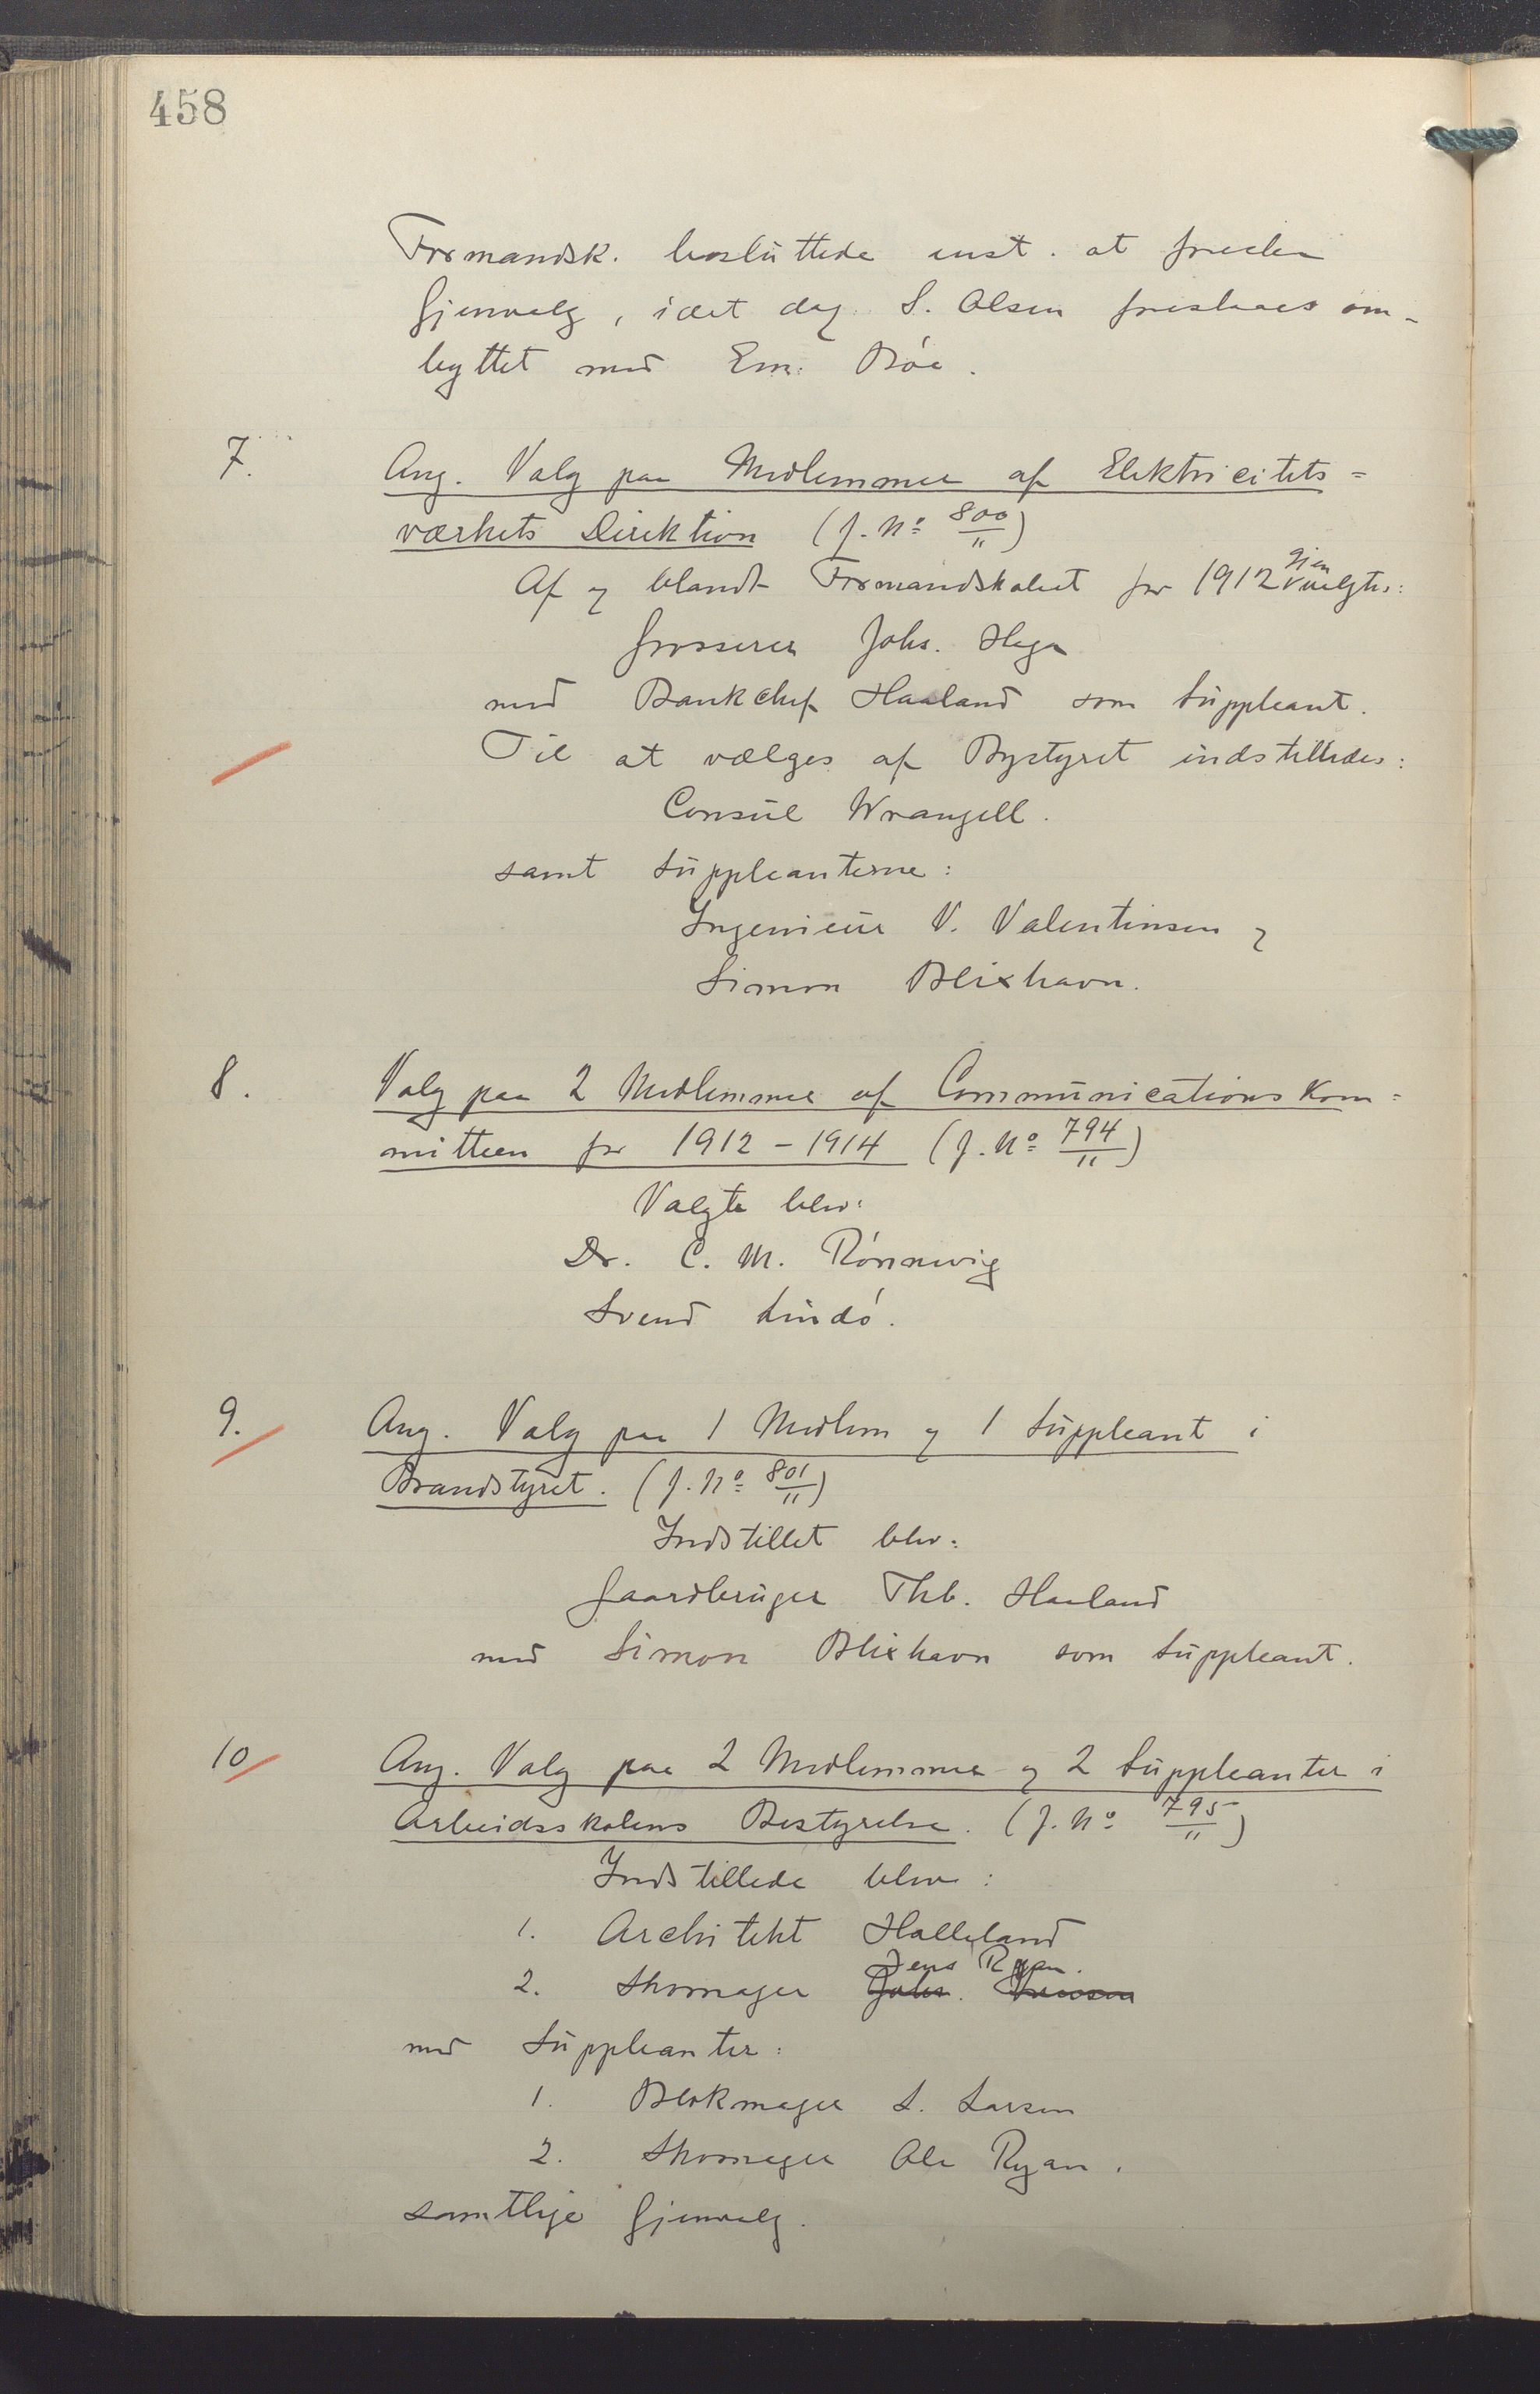 458
Formandsk. besluttede inst. at foreslaa
Gjenvalg, idet dog S. Olsen foreslaaes om-
byttet med Em. Bøe.
7. Ang. Valg paa Medlemmer af Elektricitets=
værkets Direktion (J. No 800/11)
Af og blandt Formandskabet for 1912 gjenvalgtes:
Grosserer Johs. Hega
med Bankchef Haaland som Suppleant.
Til at vælges af Bystyret indstilledes:
Consul Wrangell.
samt Suppleanterne:
Ingenieur V. Valentinsen og
Simon Blixhavn.
8. Valg paa 2 Medlemmer af Communicationskom=
mitteen for 1912-1914 (J. No 794/11)
Valgte blev:
Dr. C. M. Rönnevig
Svend Lindö.
9. Ang. Valg paa 1 Medlem og 1 Suppleant i
Brandstyret. (J. No 801/11)
Indstillet blev:
Gaardbruger Thb. Haaland
med Simon Blixhavn som Suppleant.
10 Ang. Valg paa 2 Medlemmer og 2 Suppleanter i
Arbeidsskolens Bestyrelse. (J. No 795/11)
Indstillede blev:
1. Architekt Halleland
Jens Ryan.
2. Skomager Johs.
med Suppleanter:
1. Blokmager L. Larsen
2. Skomager Ole Ryan.
samtlige Gjenvalg.